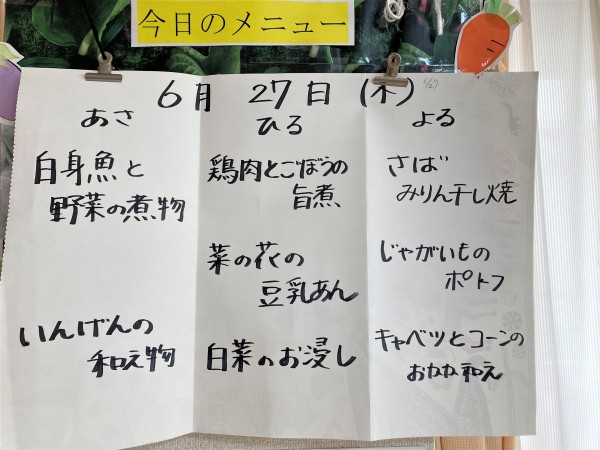 今日のメニュー
6月 27日 (木)
6/27
あさ
白身魚と
野菜の煮物
いんげんの
和え物
ひる
鶏肉とごぼうの
旨煮
菜の花の
豆乳あん
白菜のお浸し
よる
さば
みりん干し焼
じゃがいもの
ポトフ
キャベツとコーンの
おかか和え